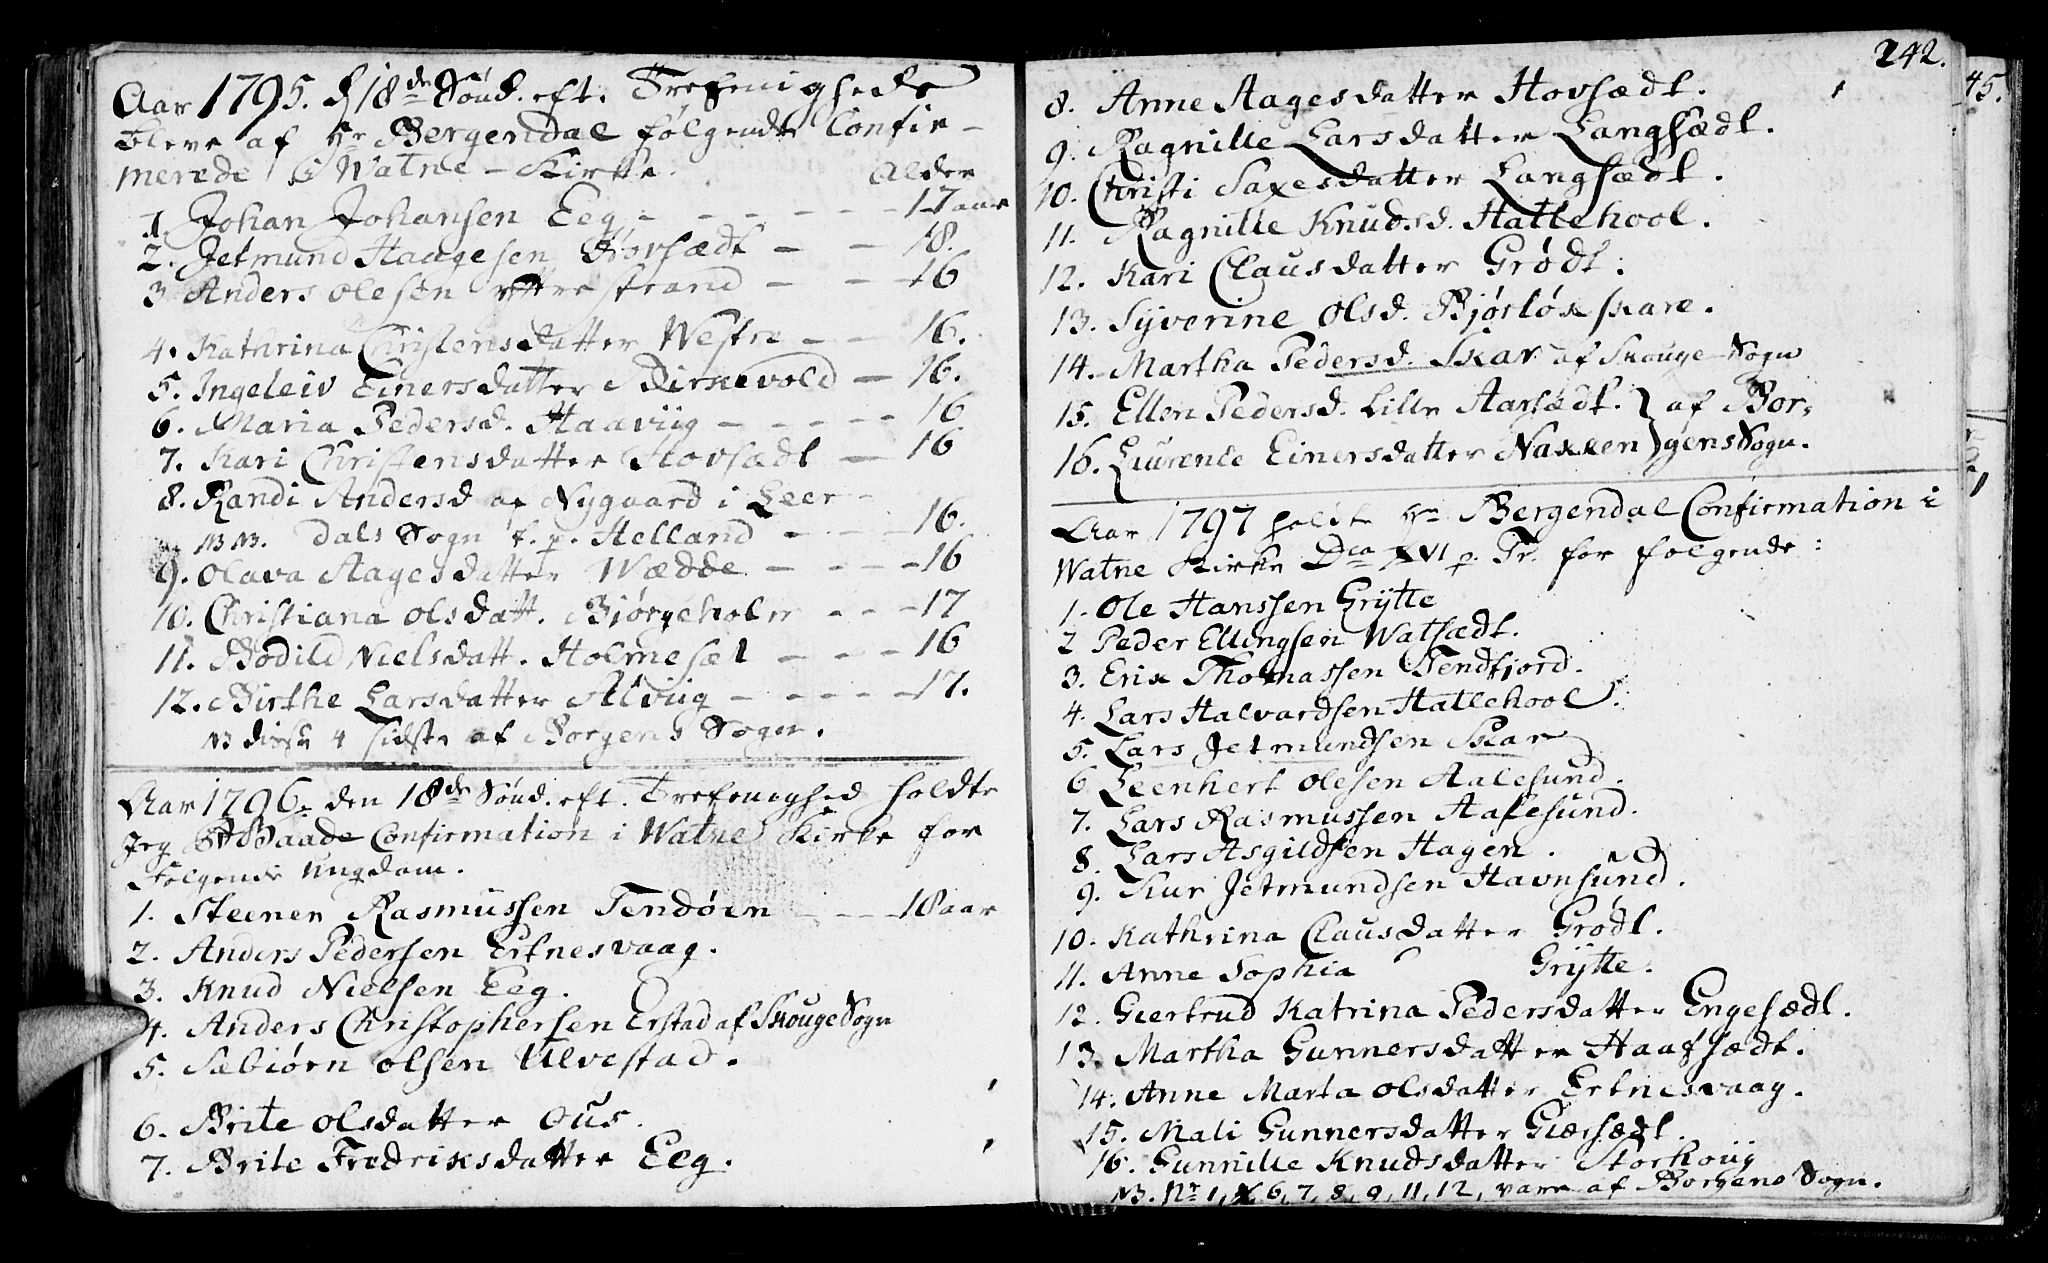 Aar 1795. d 18de Sønd. eft. Trefenighede
bleve af Hr Bergendal følgende Confir-
merede i Watne-Kirke. Alder
1. Johan Johansen Eeg - - - - - - 17 aar
2. Jetmund Haagesen Hovsædt - - 18.
3 Anders olesen yttrestrand - - 16
4. Kathrina Christensdatter Westre - - 16.
5. Ingeleiv Einersdatter Birkevold - 16.
6. Maria Pedersd. Haaviig - - - - - 16
7. Kari Christensdatter Hovsædt - 16
8. Randi Andersd af Nygaard i Leer-
NB NB. dals Sogn f. p. Helland - - - 16.
9. Olava Aagesdatter Wædde - - - - 16
10. Christiana olsdatt. Bjørgeholm - - - 17
11. Bodild Nielsdatt. Holmesæt - - - 16
12. Birthe Larsdatter Alviig - - - - - 17.
NB disse 4 sidste af Borgens Sogn.
Aar 1796. den 18de Sønd. eft. Trefenighed holdte
Jeg Baade Confirmation i Watne Kirke for
Følgende Ungdom.
1. Steener Rasmussen Tendøen - - - 18 aar
2. Anders Pedersen Ertnesvaag.
3. Knud Nielsen Eeg.
4. Anders Christophersen Erstad af Skouge Sogn
5. Sæbiørn olsen Ulvestad.
6. Brite olsdatter Ous.
7. Brite Fredriksdatter Eeg.
242.
45.
8. Anne Aagesdatter Hovsædt.
9. Ragnille Larsdatter Langsædt.
10. Christi Saxesdatter Langsædt.
11. Ragnille Knudsd. Hatlehool.
12. Kari Clausdatter Grødt.
13. Syverine Olsd. Bjørløkskare.
14. Martha Pedersd. Skar af Skouge Sogn
15. Ellen Pedersd. Lille Aarsædt. } af Bor-
16. Laurence Einersdatter Nakken } gens Sogn.
Aar 1797 holdte Hr Bergendal Confirmation i
Watne Kirke Dca XVI p. Tr. for følgende:
1. Ole Hanssen Grÿtte
2 Peder Ellingsen Watsædt.
3. Erik Thomassen Tendfjord.
4. Lars Halvardsen Hatlehool.
5. Lars Jetmundsen Skar
6 Leenhert olesen Aalesund.
7. Lars Rasmussen Aalesund.
8. Lars Asgildsen Hagen.
9. Kur Jetmundsen Havnsund.
10. Kathrina Clausdatter Grødt.
11. Anne Sophia Grÿtte.
12. Giertrud Katrina Pedersdatter Engesædt.
13. Martha Gunnersdatter Haafsædt.
14. Anne Marta olsdatter Ertnesvaag.
15. Mali Gunnersdatter Giærsædt.
16. Gunnille Knudsdatter Storhoug
NB. Nr 1, 6, 7, 8, 9, 11, 12, vare af Borgens Sogn.